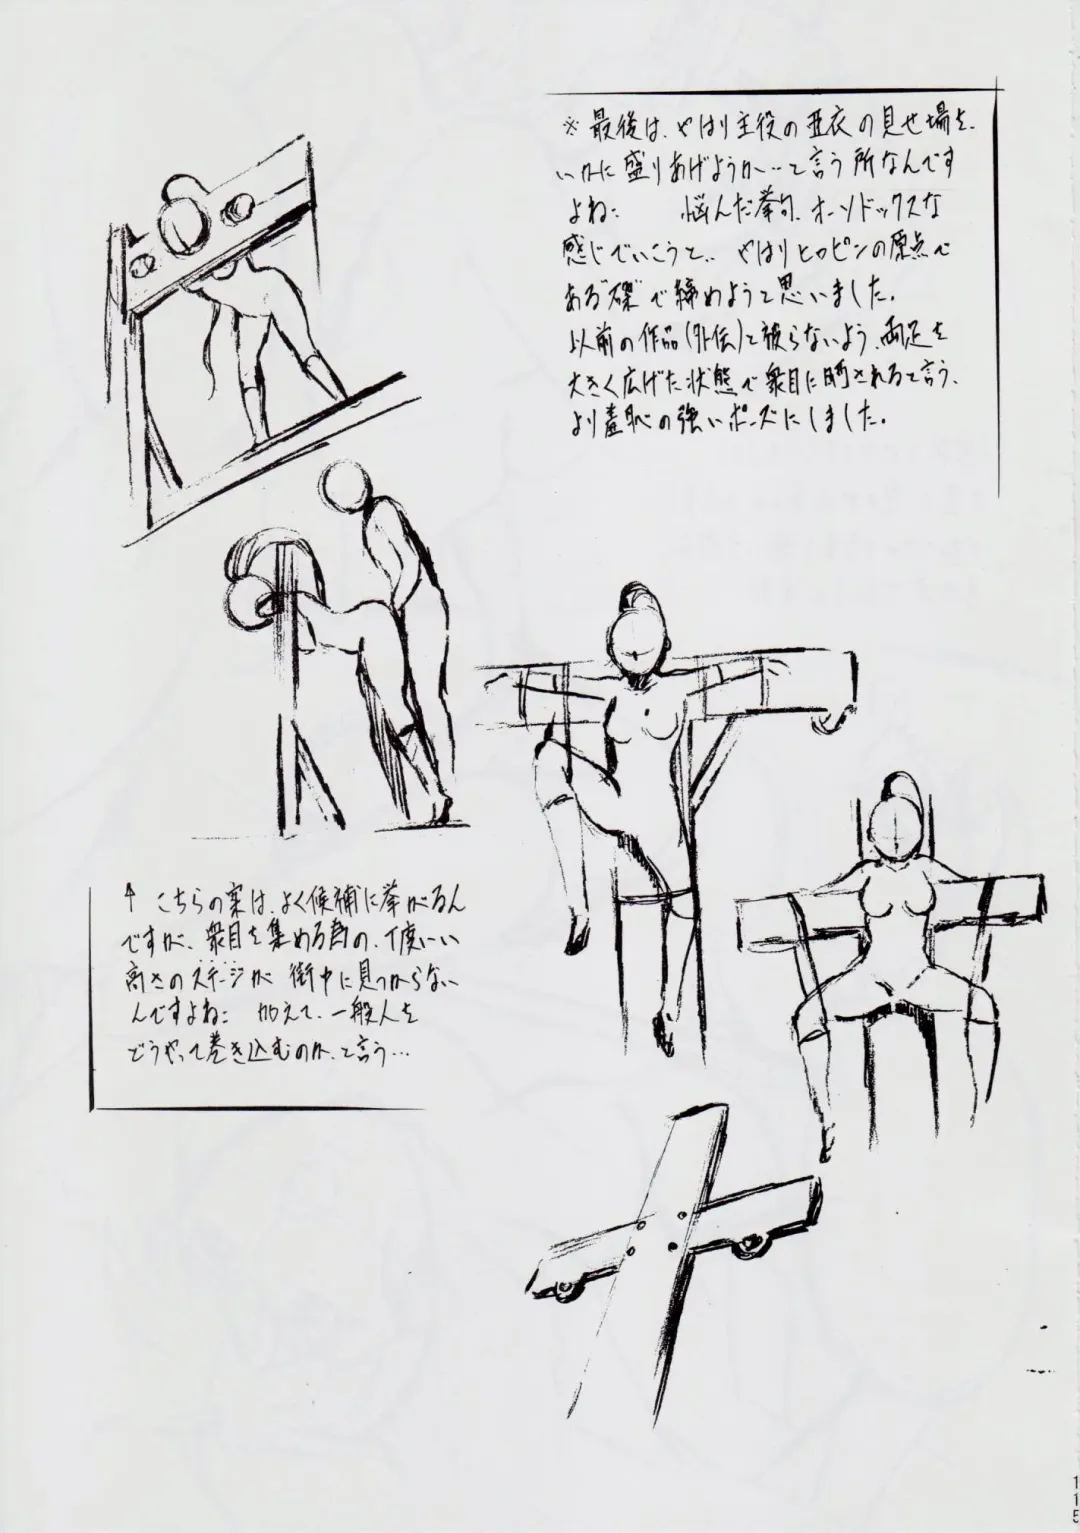 ※最後は、やはり主役の亜衣の見せ場を、
いかに盛りあげようか…と言う所なんです
よね 悩んだ挙句、オーソドックスな
感じでいこうと、やはりヒロピンの原点で
ある"磔"で締めようと思いました。
以前の作品(外伝)と被らないよう、両足を
大きく広げた状態で衆目に晒されると言う、
より羞恥の強いポーズにしました。
↑ こちらの案は、よく候補に挙がるん
ですが、衆目を集める為の、丁度いい
高さのステージが 街中に見つからない
んですよね 加えて、一般人を
どうやって巻き込むのか、と言う…
115